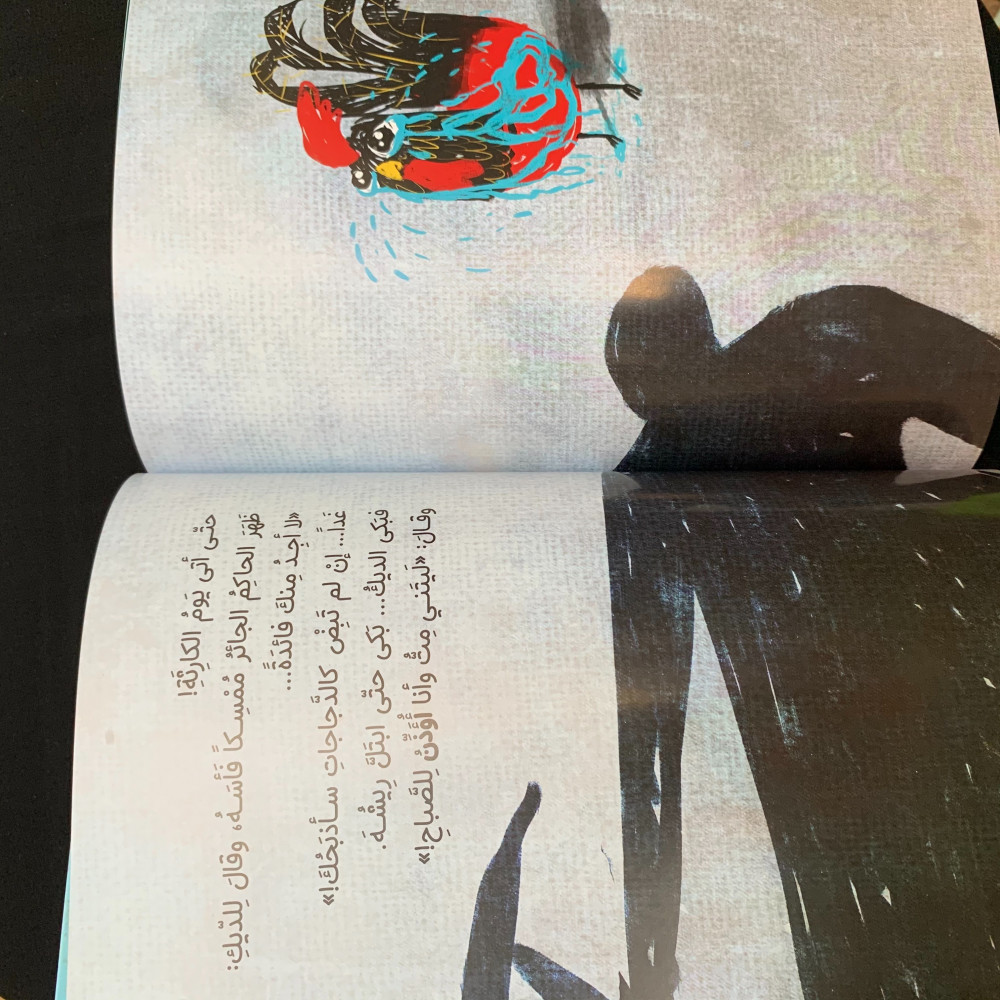 حتّى أتى يَومُ الكارِثَةِ!
ظَهَرَ الحاكِمُ الجائرُ مُمْسِكاً فَأسَهُ، وقالَ لِلدّيكِ:
«لا أجِدُ مِنكَ فائدَةً...
غَداً... إنْ لم تَبِضْ كالدَّجاجاتِ سأذبَحُكَ!»
فبَكى الديكُ... بَكى حتّى ابتَلَّ رِيشُهَ.
وقالَ: «لَيتَني مِتُّ وأنا أُؤَذِّنُ لِلصَّباحِ!»